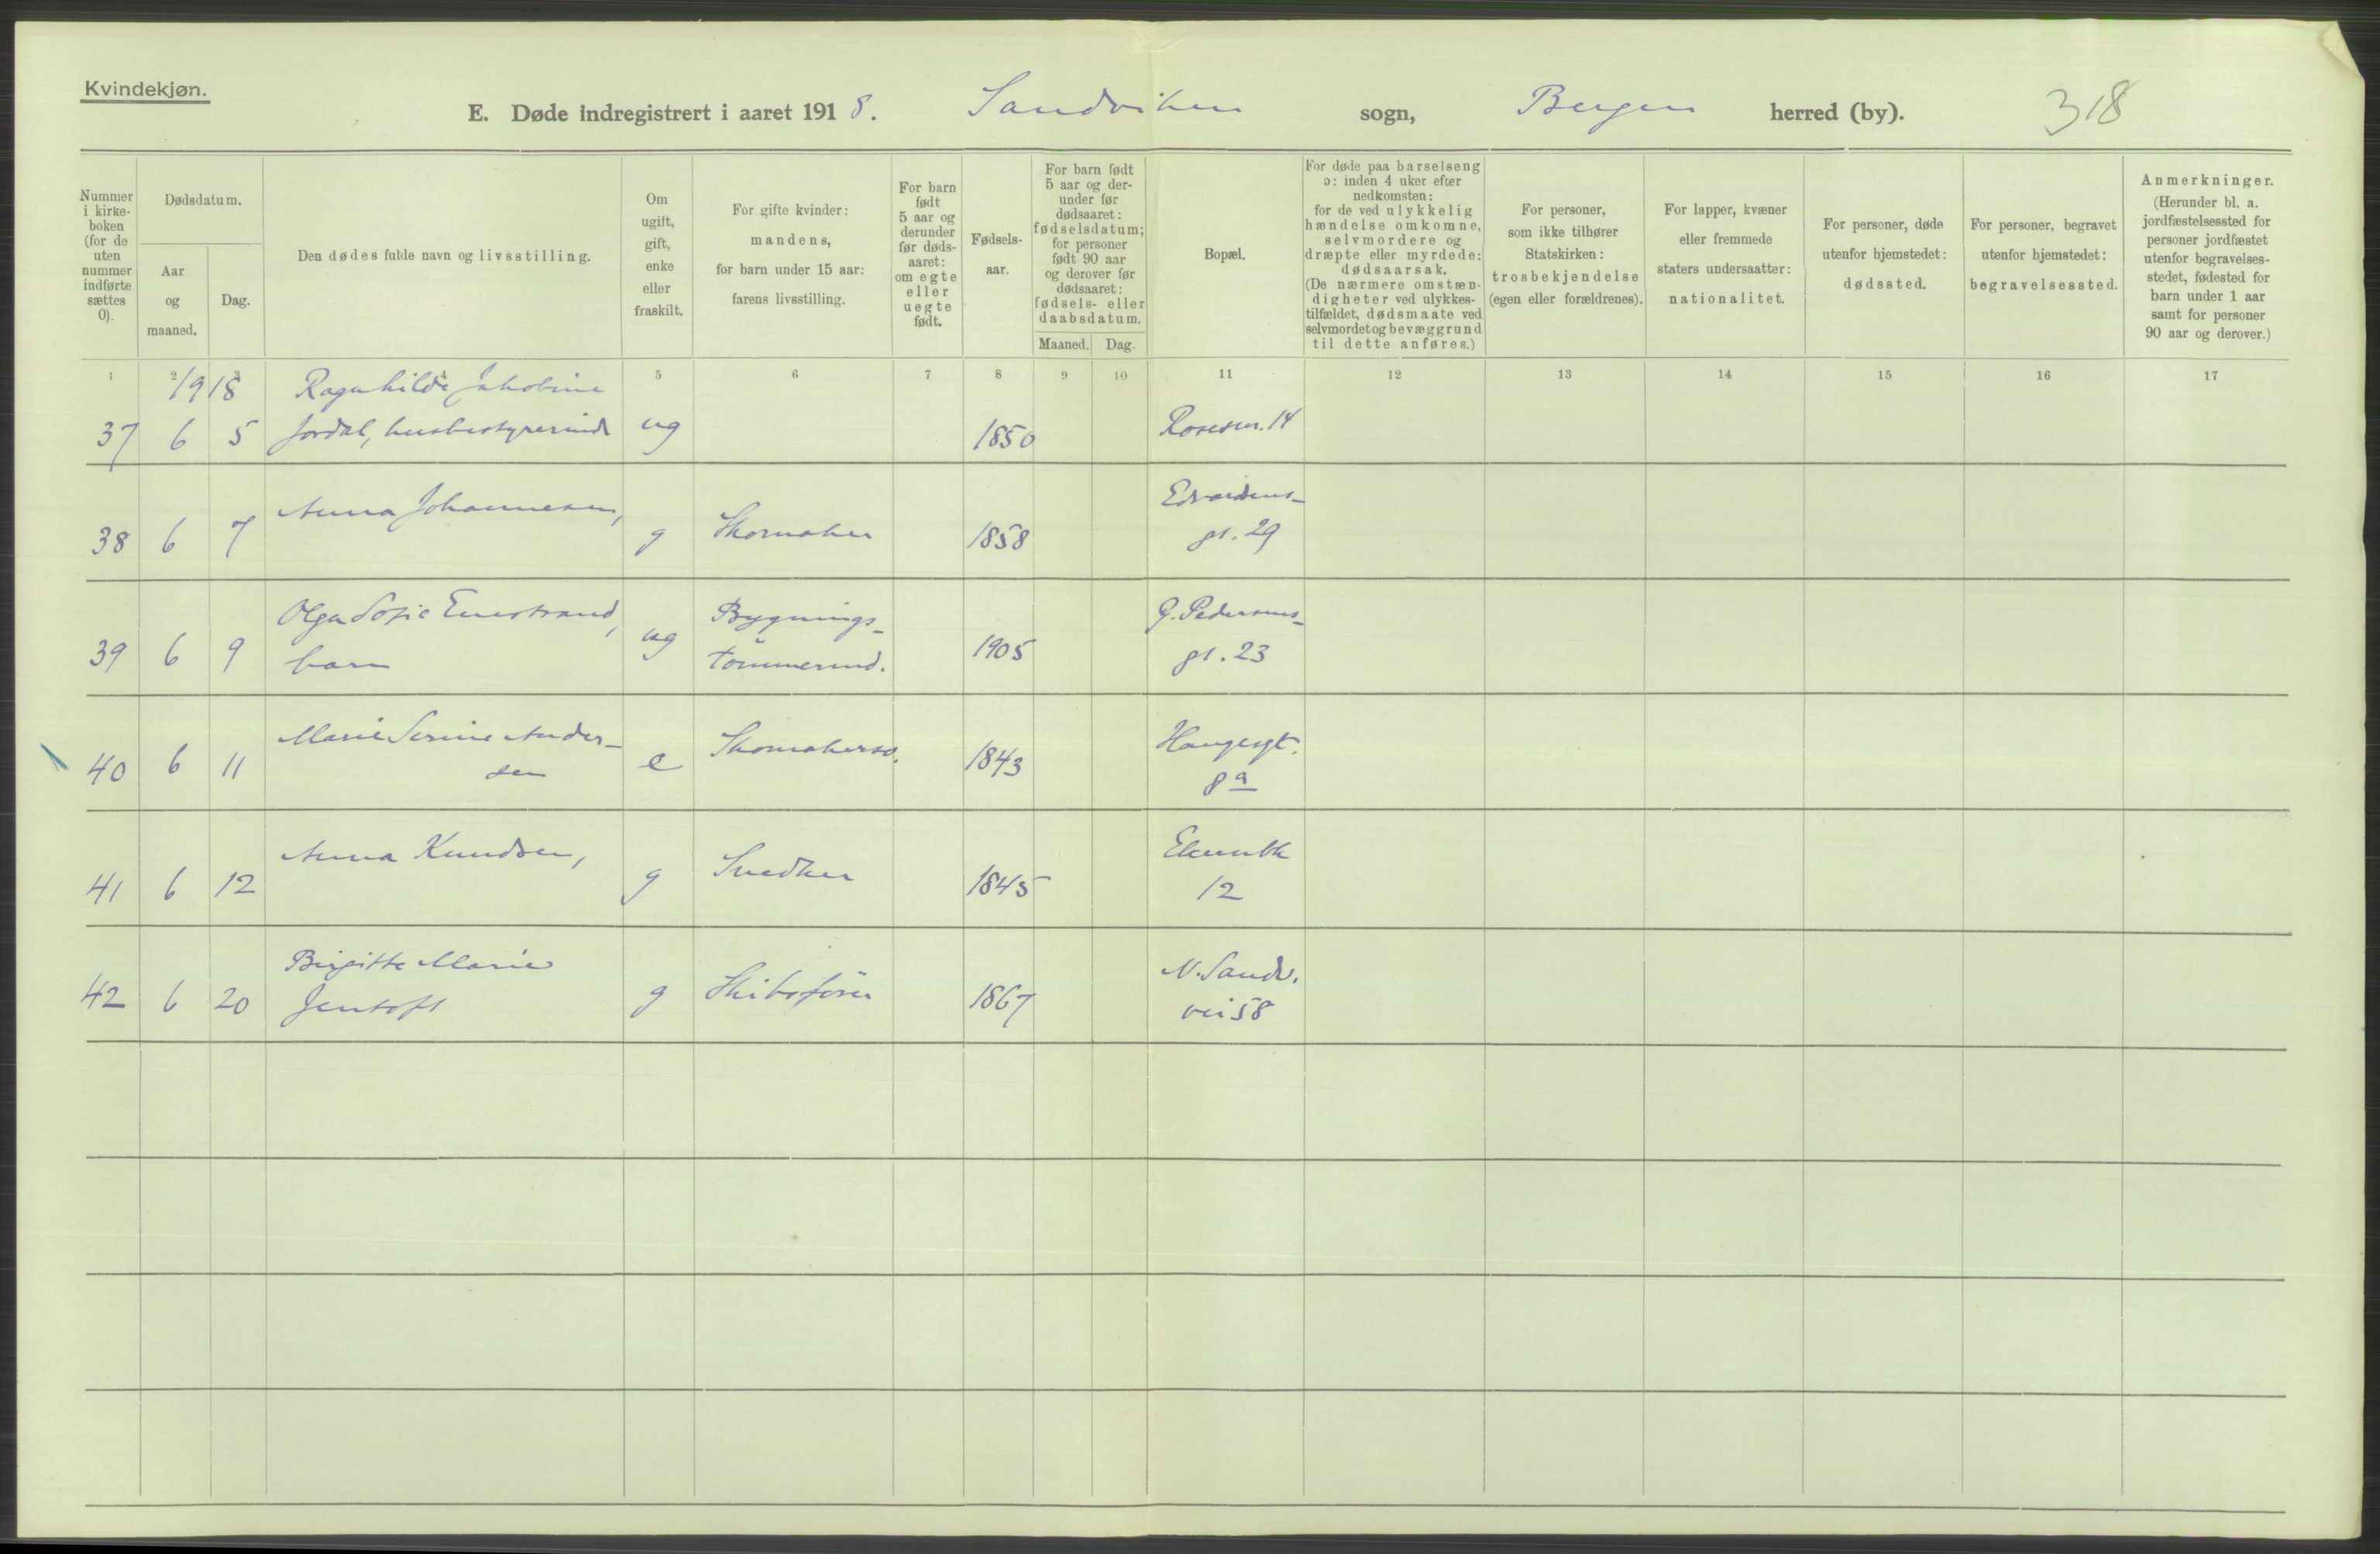 Kvindekjøn.
E. Døde indregistrert i aaret 1918. Sandviken sogn, Bergen herred (by). 318
Nummer i kirkeboken (for de uten nummer indførte sættes 0).
Dødsdatum.
Aar og maaned.
Dag.
Den dødes fulde navn og livsstilling.
Om ugift, gift, enke eller fraskilt.
For gifte kvinder: mandens, for barn under 15 aar: farens livsstilling.
For barn født 5 aar og derunder før dødsaaret: om egte eller uegte født.
Fødselsaar.
For barn født 5 aar og derunder før dødsaaret: fødselsdatum; for personer født 90 aar og derover før dødsaaret: fødsels- eller daabsdatum.
Maaned. Dag.
Bopæl.
For døde paa barselseng ɔ: inden 4 uker efter nedkomsten: for de ved ulykkelig hændelse omkomne, selvmordere og dræpte eller myrdede: dødsaarsak. (De nærmere omstændigheter ved ulykkestilfældet, dødsmaate ved selvmordet og bevæggrund til dette anføres.)
For personer, som ikke tilhører Statskirken: trosbekjendelse (egen eller forældrenes).
For lapper, kvæner eller fremmede staters undersaatter: nationalitet.
For personer, døde utenfor hjemstedet: dødssted.
For personer, begravet utenfor hjemstedet: begravelsessted.
Anmerkninger. (Herunder bl. a. jordfæstelsessted for personer jordfæstet utenfor begravelsesstedet, fødested for barn under 1 aar samt for personer 90 aar og derover.)
1 2 3 4 5 6 7 8 9 10 11 12 13 14 15 16 17
1918 Ragnhilde Jakobine
37 6 5 Jordal, husbestyrerinde ug 1850 Rosesm. 14
Anna Johannesen, Edvardsens-
38 6 7 g Skomaker 1858 gt. 29
Olga Sofie Enestrand, Bygnings- G. Pedersens-
39 6 9 barn ug tömmermd. 1905 gt. 23
Marie Serine Ander- Skomakersv. Haugegt.
40 6 11 sen e 1843 8a
Anna Knudsen,
41 6 12 g Snedker 1845 12
Birgitte Marie N. Sandv.
42 6 20 Jentoft g Skibsförer 1867 vei 58